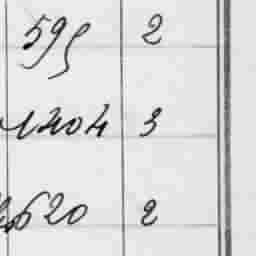 595 2
1204 3
620 2